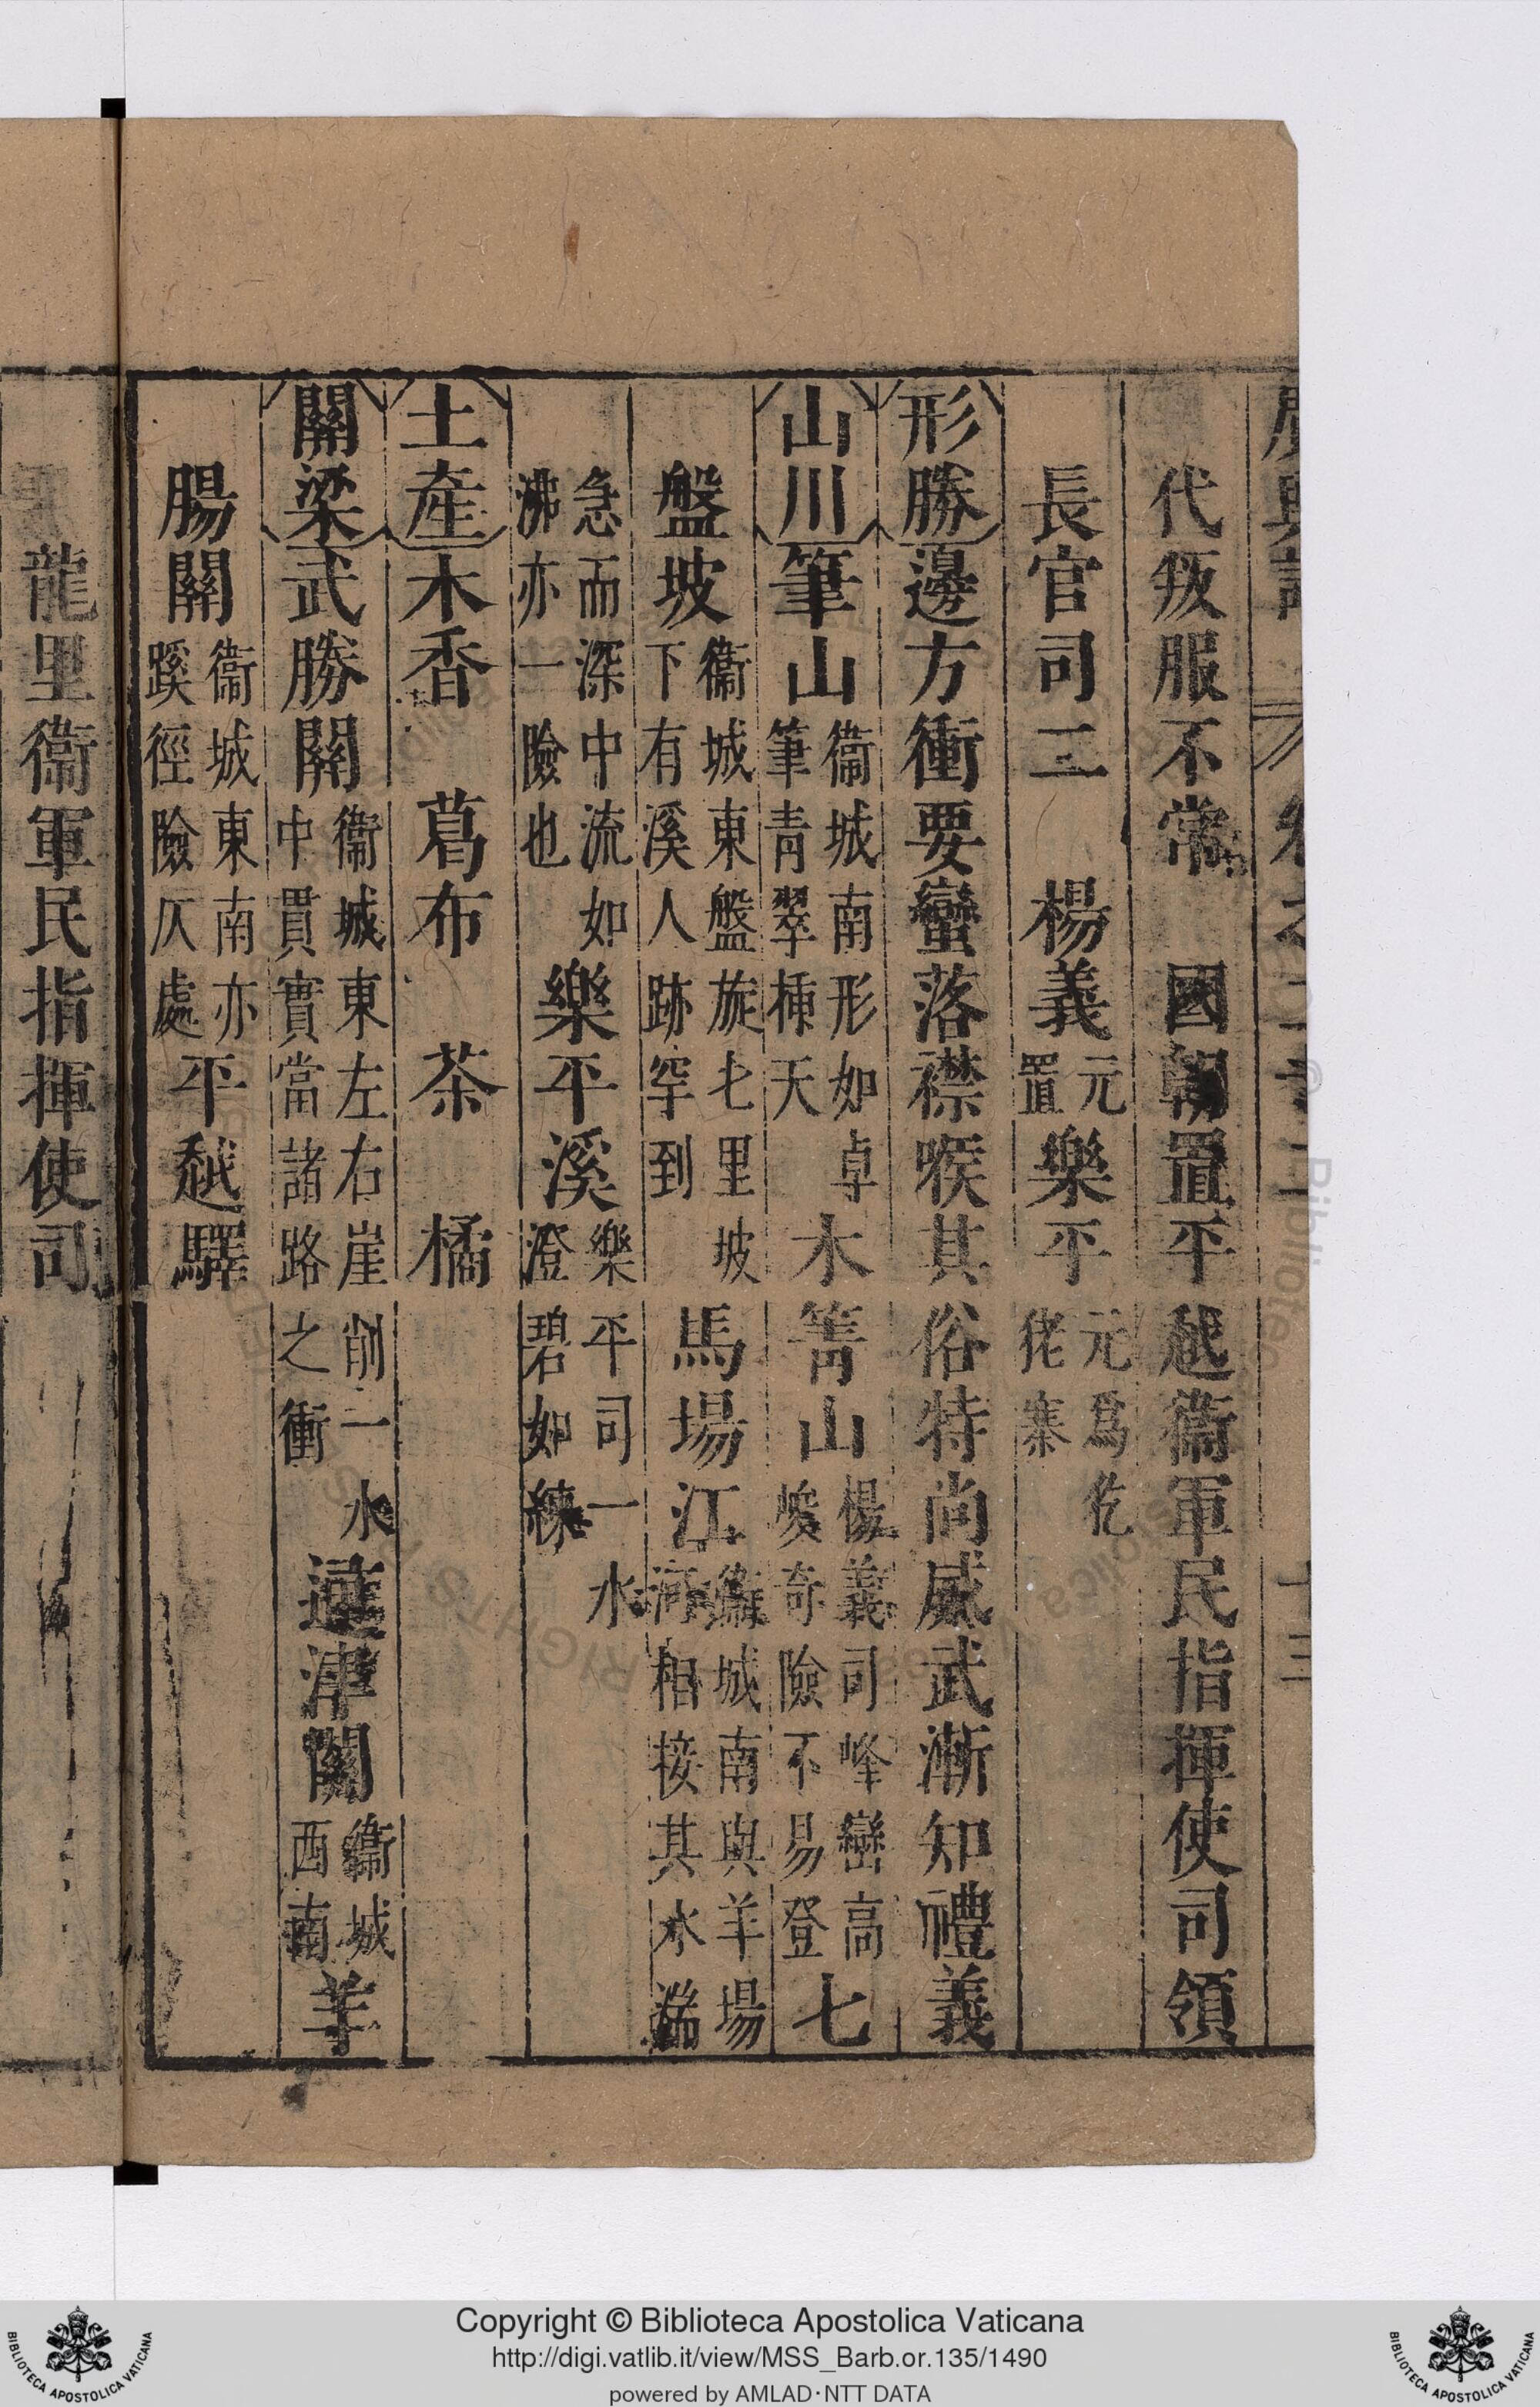 廣輿記 卷之二十二 十三
代叛服不常 國朝置平越衞軍民指揮使司領
長官司二 楊義元置樂平元爲犵狫寨
形勝邊方衝要蠻落襟喉其俗特尚威武漸知禮義
山川筆山衞城南形如卓筆青翠插天木筈山楊義司峰巒高峻奇險不易登七
盤坡衞城東盤旋七里坡下有溪人跡罕到馬場江衞城南與羊場河相接其水湍
急而深中流如沸亦一險也樂平溪樂平司一水澄碧如練
土產木香 葛布 茶 橘
關梁武勝關衞城東左右崖削一水中貫實當諸路之衝通津關衞城西南羊
腸關衞城東南亦蹊徑險仄處平越驛
龍里衞軍民指揮使司
Copyright © Biblioteca Apostolica Vaticana
http://digi.vatlib.it/view/MSS_Barb.or.135/1490
powered by AMLAD·NTT DATA
BIBLIOTECA APOSTOLICA VATICANA
BIBLIOTECA APOSTOLICA VATICANA